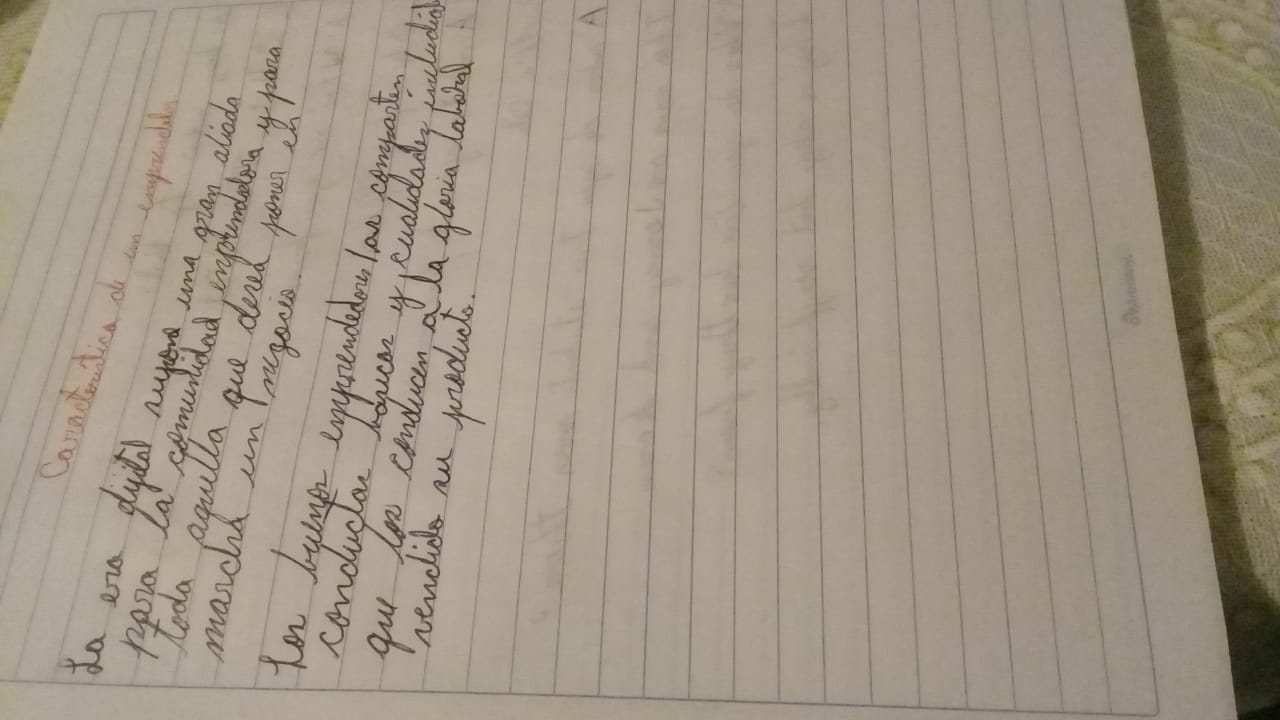 Caracteristica de un emprendedor
La era dijital supone una gran aliada
para la comunidad emprendedora y para
toda aquella que desea poner en
marcha un negocio.
Los buenos emprendedores/as comparten
conductas basicas y cualidades includida
que los conducen a la gloria laboral.
vendido su producto.
A